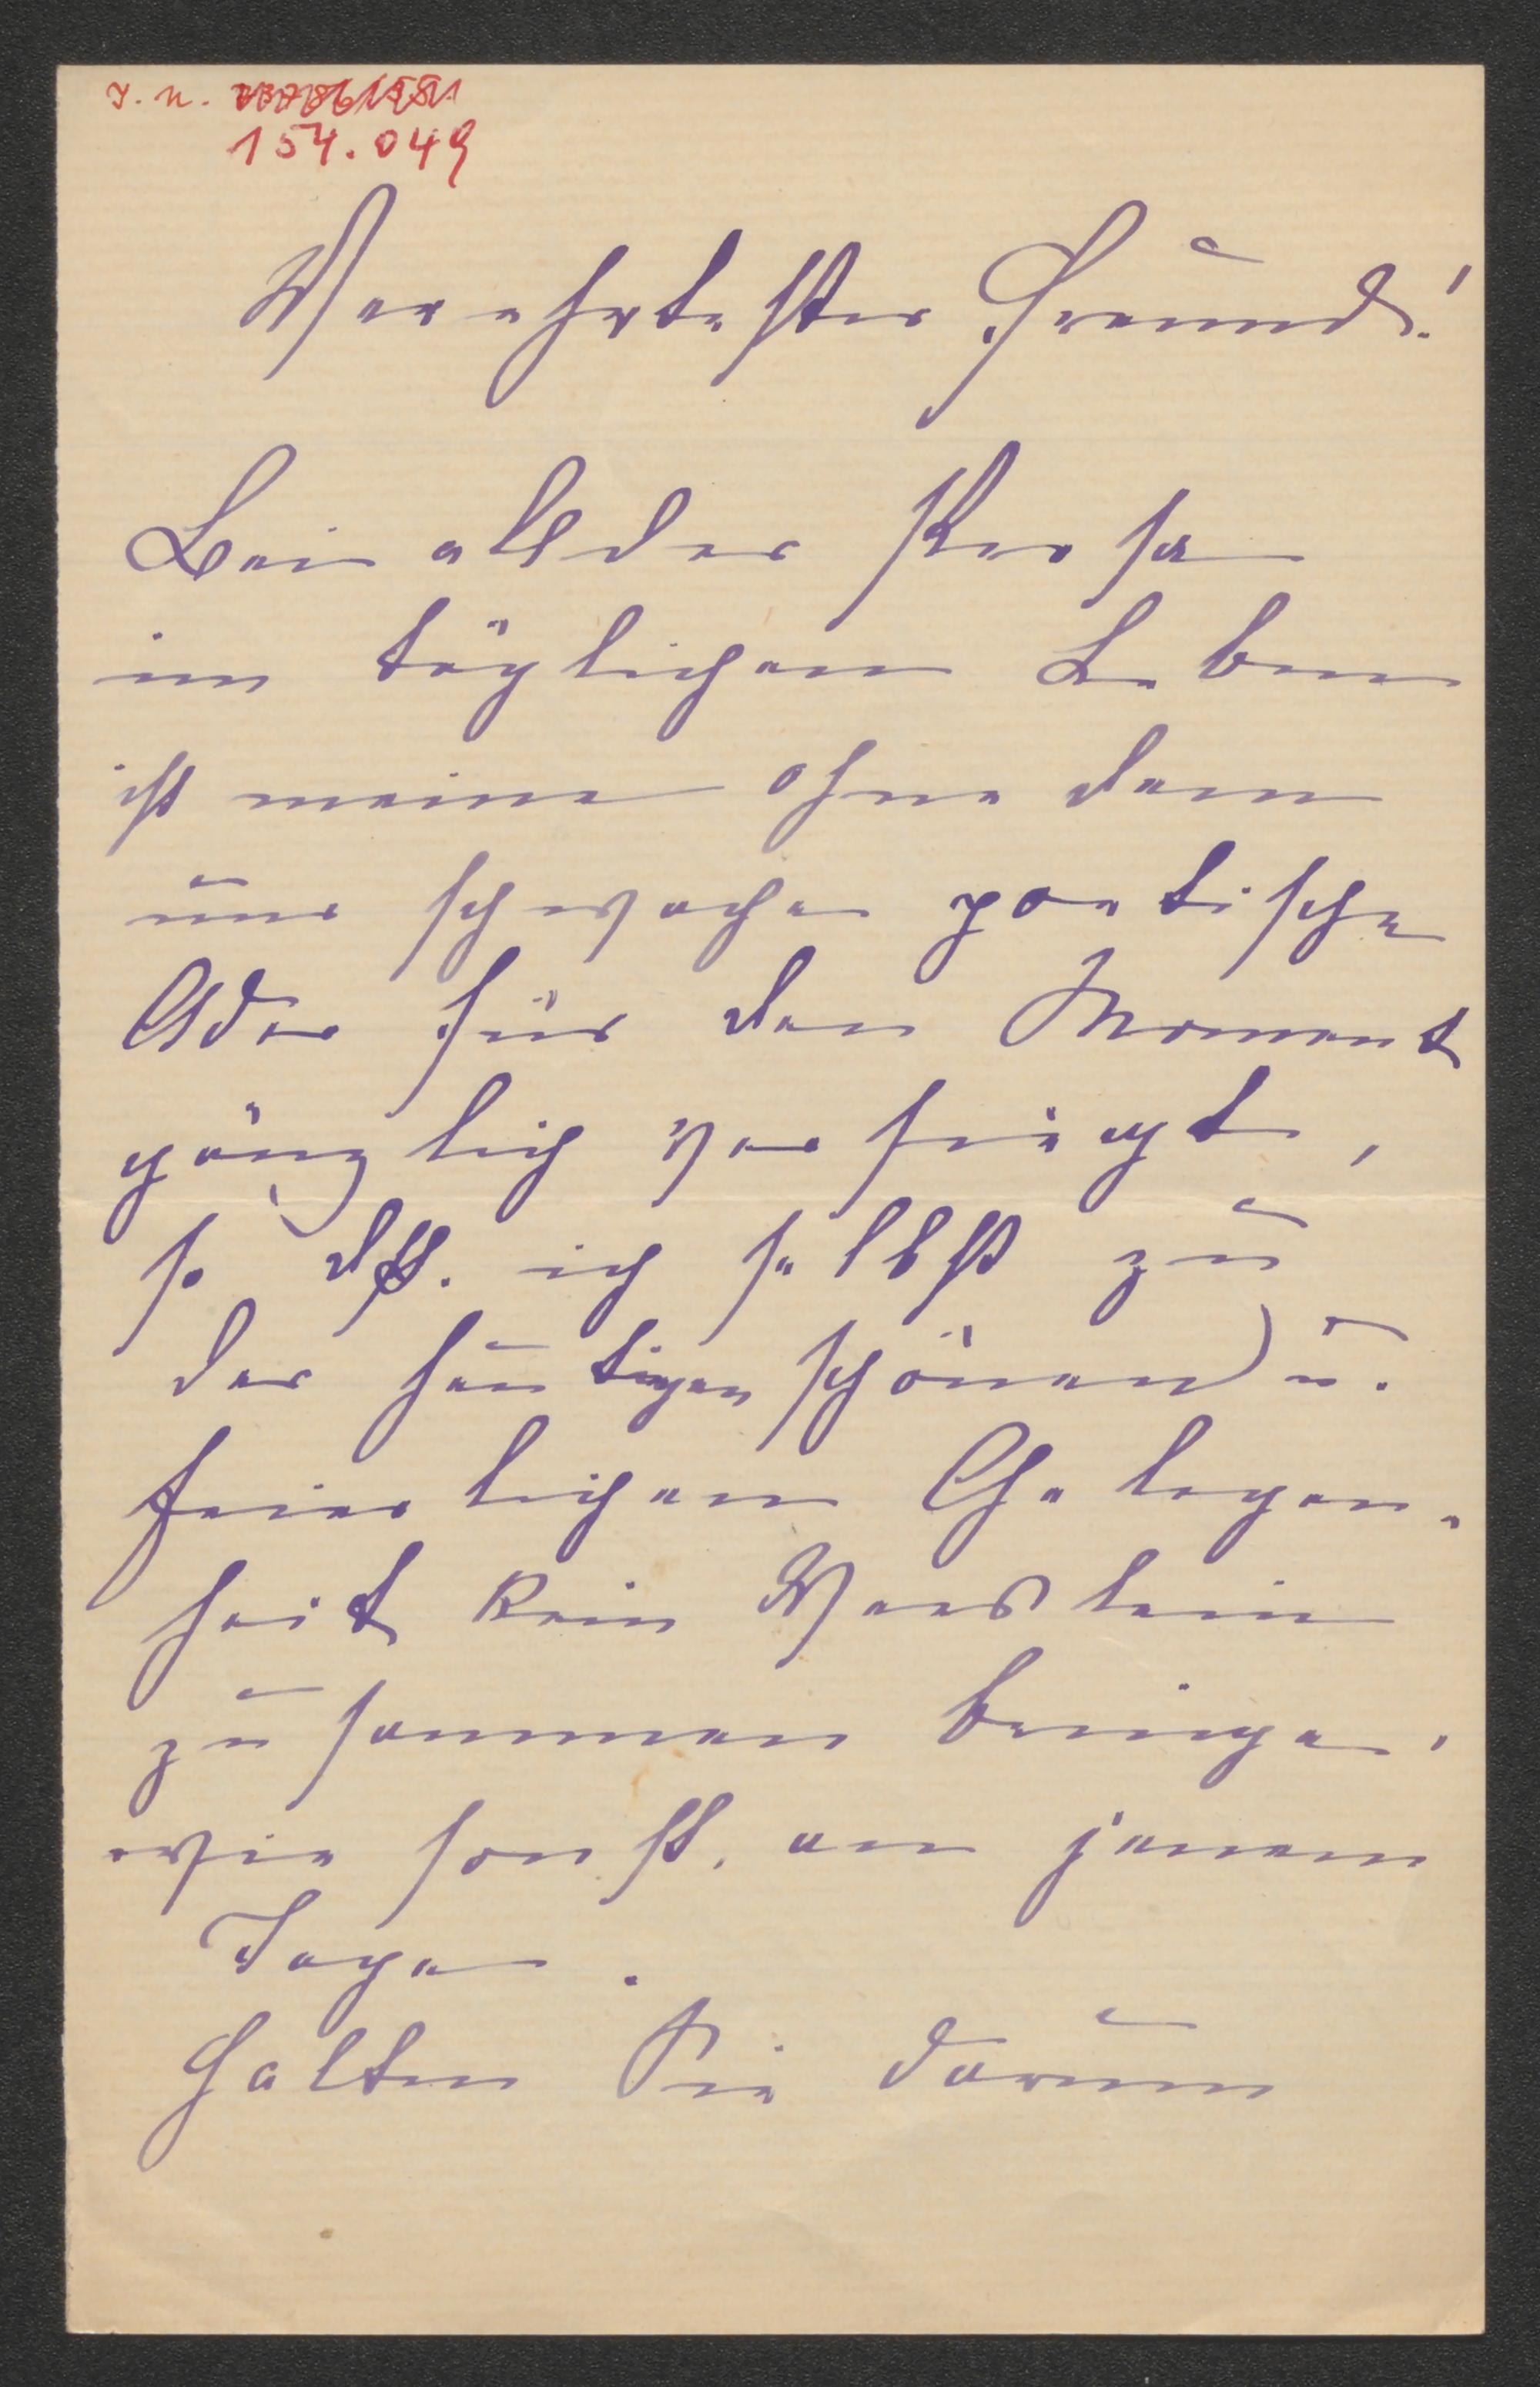 J. N.
154.049
Verehrtester Freund!
Bei all der Prosa
im täglichen Leben
ist meine ohnedem
nur schwache poetische
Ader für den Moment
gänzlich versiegt,
so dß. ich selbst zu
der heutigen schönen) u.
feierlichen Gelegen-
heit kein Verslein
zusammen bringe,
wie sonst, an jenem
Tage.
Halten Sie darum